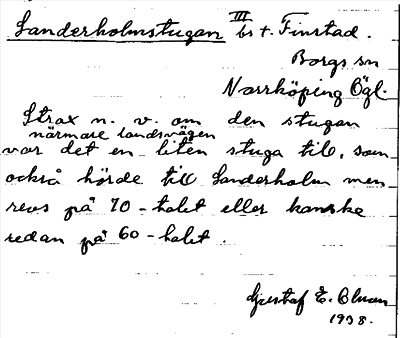 Sanderholmstugan III bs t. Finstad.
Borgs sn
Norrköping Ögl.
Strax n. v. om den stugan
närmare landsvägen
var det en liten stuga till, som
också hörde till Sanderholm men
revs på 70-talet eller kanske
redan på 60-talet.
Gustaf E. Olman
1938.